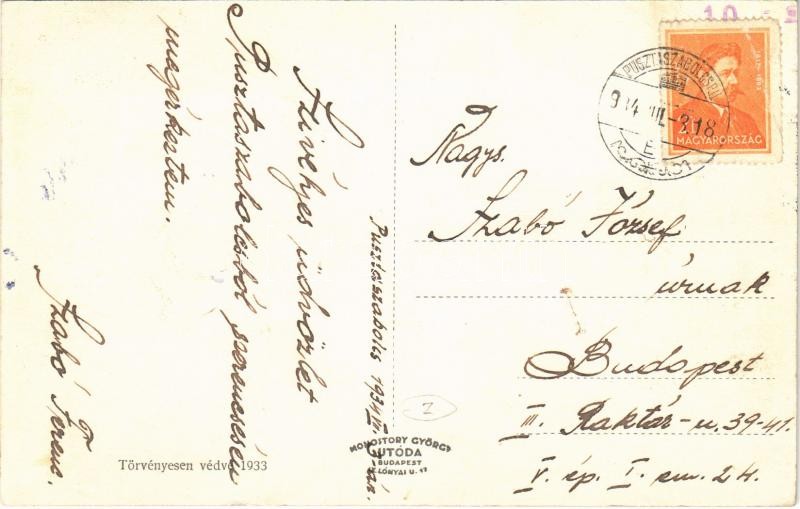 Szívélyes üdvözlet
Pusztaszabolcsból szerencsésen
megérkeztem.
Szabó Ferenc.
Pusztaszabolcs 1934 VII. 3-án.
Törvényesen védve 1933
MONOSTORY GYÖRGY
UTÓDA
BUDAPEST
LÓNYAI U. 17
Z
10
PUSZTASZABOLCS
934 VII -3.18
E
MAGYARORSZÁG
Nagys.
Szabó József
úrnak
Budapest
III. Raktár-u. 39-41.
V. ép. I. em. 24.